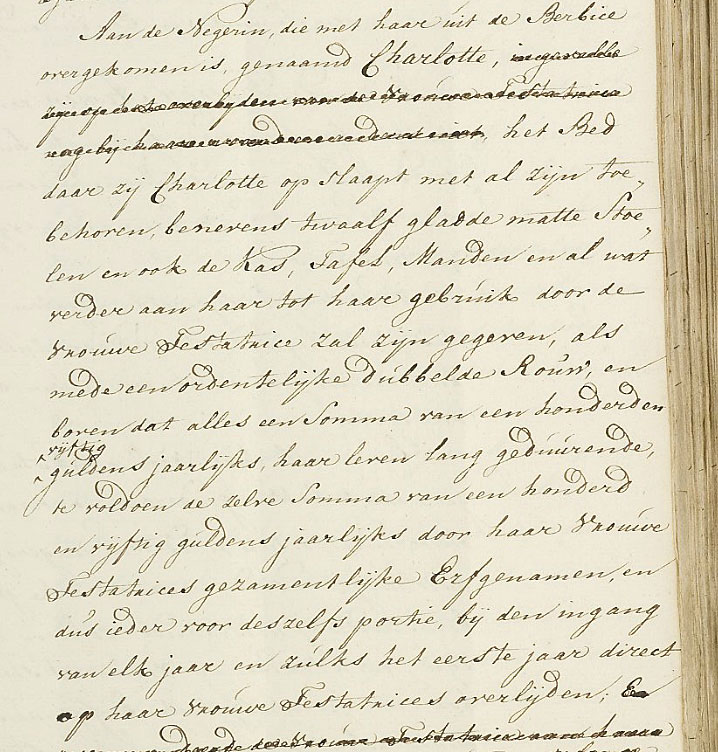 Aan de Negerin, die met haar uit de Berbice
overgekomen is, genaamd Charlotte, ingevalle
zij op het overlijden van de Vrouwe Testatrice
nog bij haar
het Bed
daar zij Charlotte op slaapt met al zijn toe„
behoren, benevens twaalf gladde matte Stoe„
len en ook de Kas, Tafel, Manden en al wat
verder aan haar tot haar gebruik door de
Vrouwe Testatrice zal zijn gegeven, als
mede een ordentelijke dubbelde Rouw, en
boven dat alles een Somma van een honderd en
vijftig
guldens jaarlijks, haar leven lang geduurende,
te voldoen de zelve Somma van een honderd
en vijftig guldens jaarlijks door haar Vrouwe
Testatrices gezamentlijke Erfgenamen, en
dus ieder voor deszelfs portie, bij den ingang
van elk jaar en zulks het eerste jaar direct
op haar Vrouwe Testatrices overlijden; En
de Vrouwe Testatrice